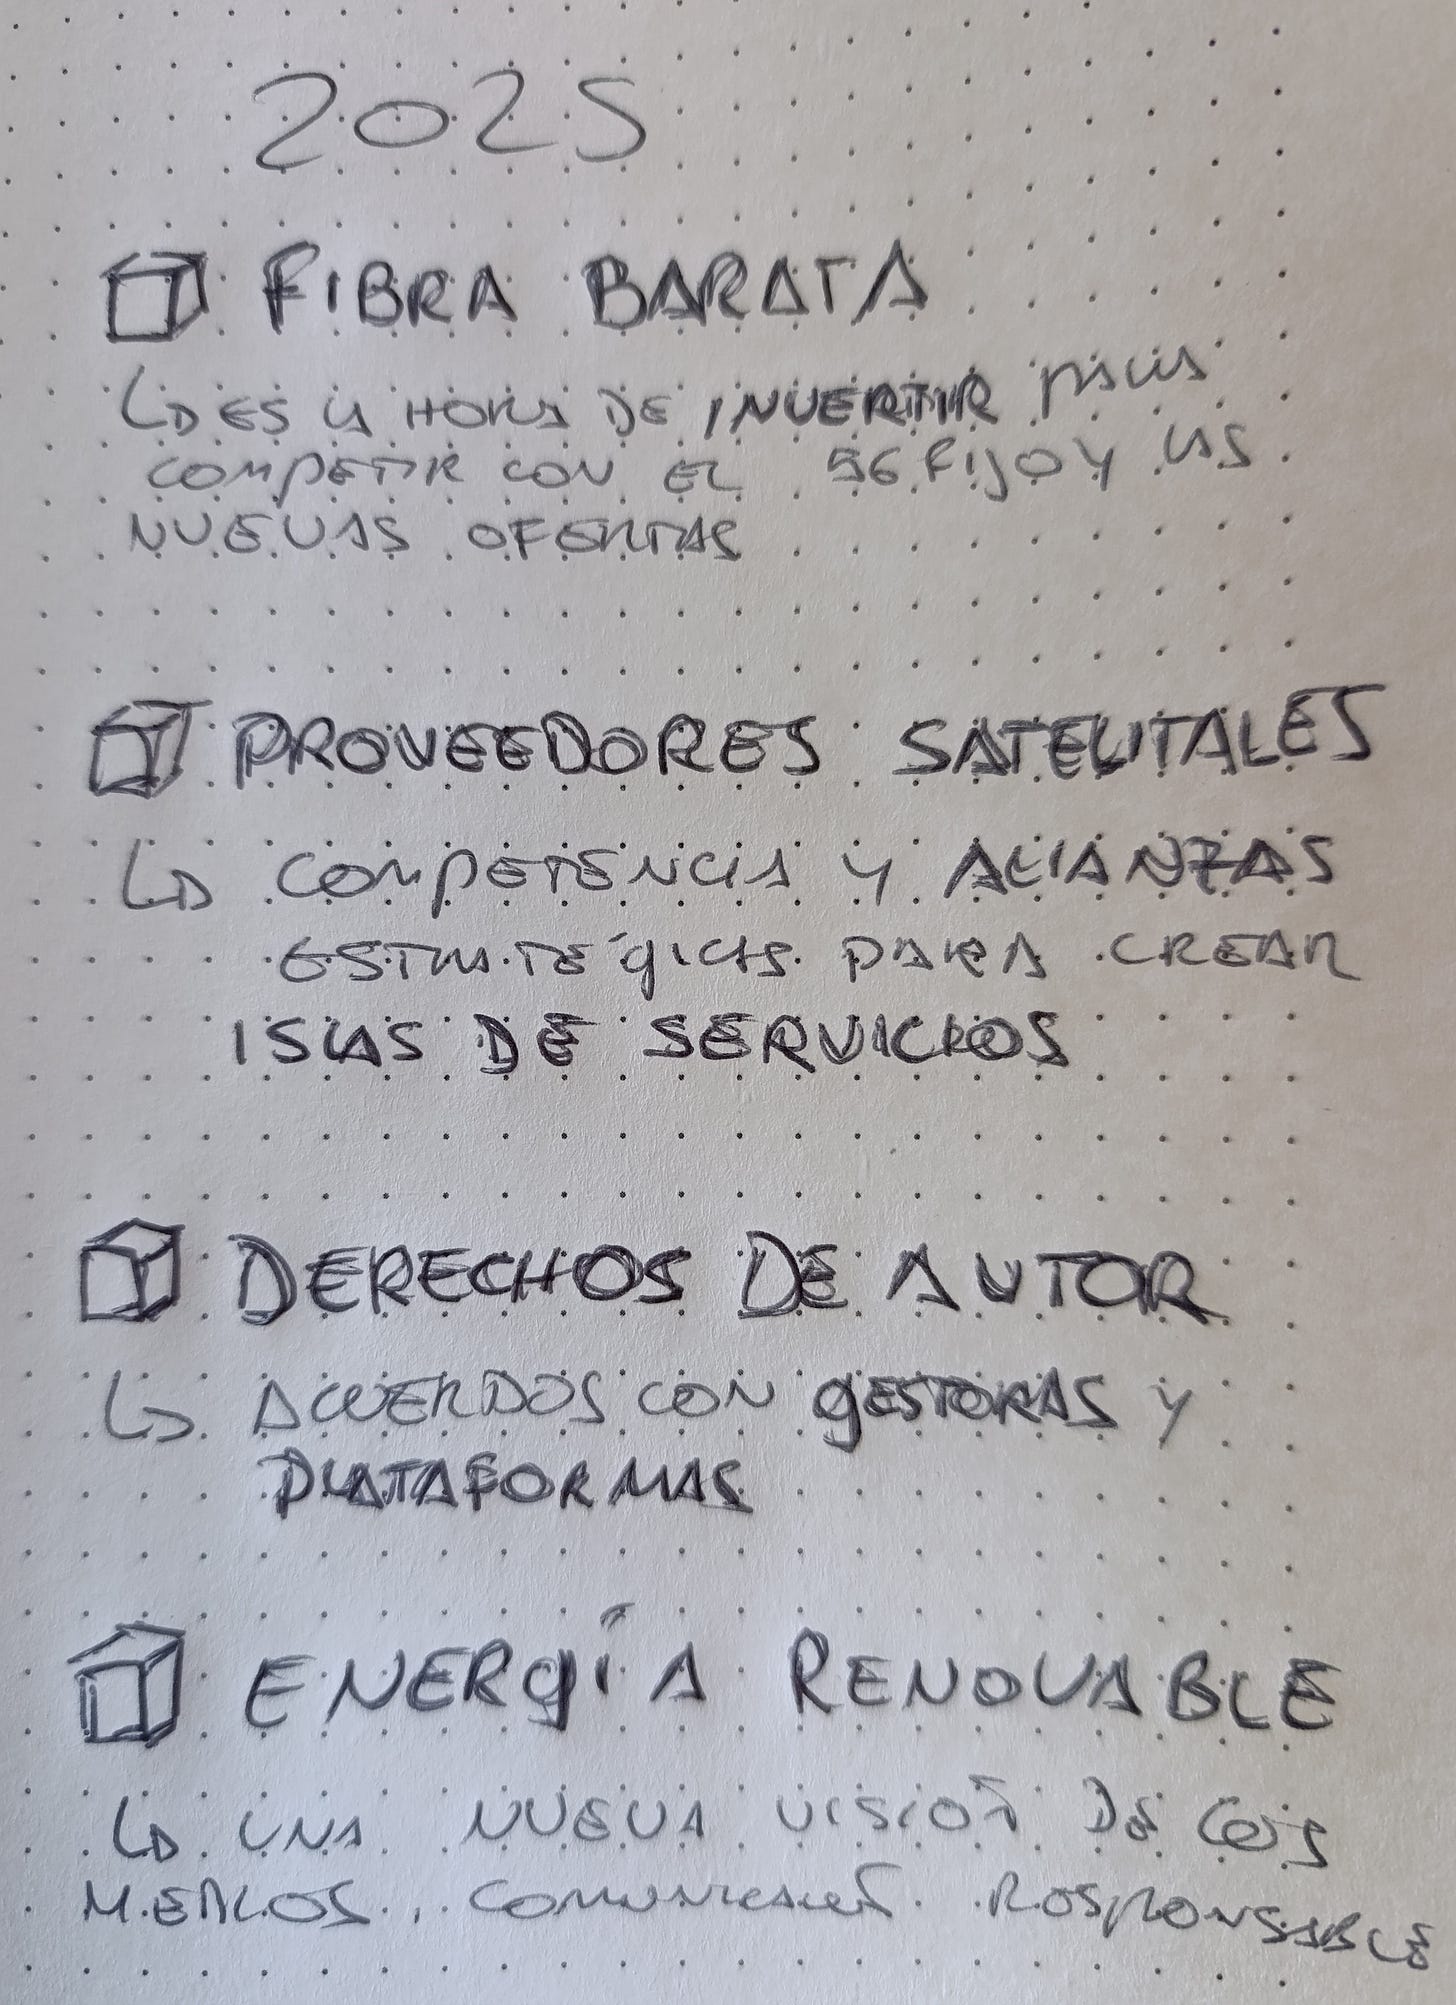 2025
FIBRA BARATA
ES LA HORA DE INVERTIR PARA
COMPETIR CON EL 5G FIJO Y LAS
NUEVAS OFERTAS
PROVEEDORES SATELITALES
COMPETENCIA Y ALIANZAS
ESTRATÉGICAS PARA CREAR
ISLAS DE SERVICIOS
DERECHOS DE AUTOR
ACUERDOS CON GESTORAS Y
PLATAFORMAS
ENERGÍA RENOVABLE
UNA NUEVA VISIÓN DE LOS
MEDIOS, COMUNICACIÓN RESPONSABLE